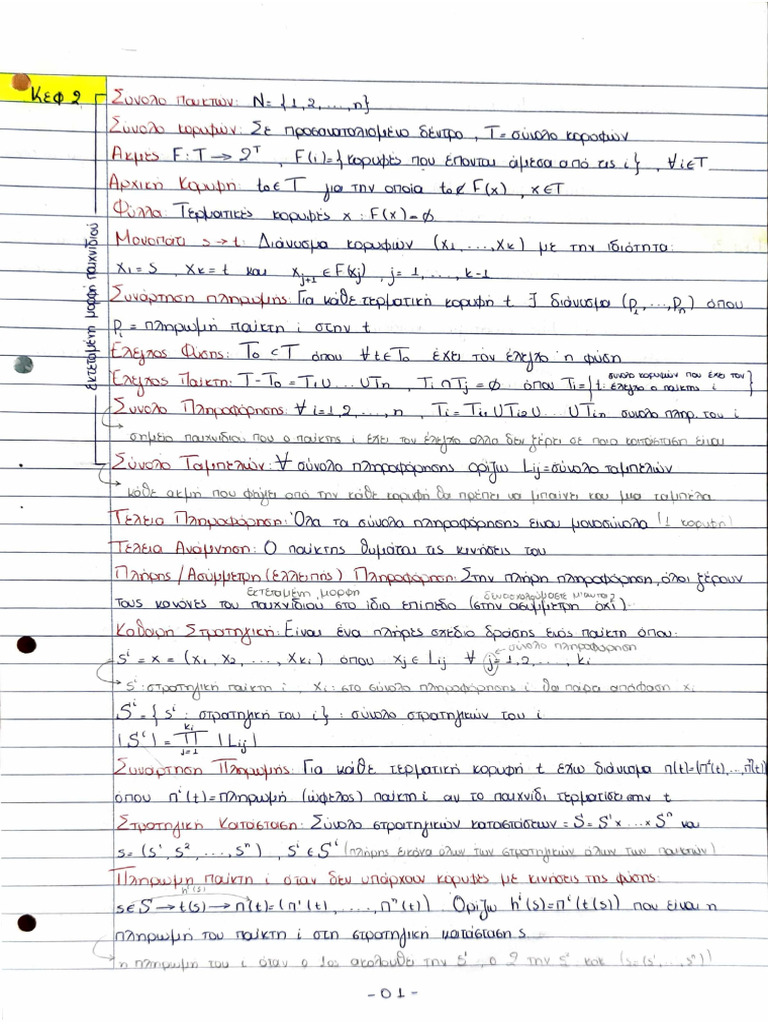 Κεφ 2
Σύνολο παικτών: N = {1,2,...,n}
Σύνολο κορυφών: Σε προσανατολισμένο δέντρο, T = σύνολο κορυφών
Ακμές F: T → 2^T , F(i) = {κορυφές που έπονται άμεσα από τις i} , ∀i∈T
Αρχική Κορυφή: t₀∈T για την οποία t₀∉F(x) , x∈T
Φύλλα: Τερματικές κορυφές x : F(x) = ∅
Μονοπάτι s→t: Διάνυσμα κορυφών (x₁,...,xκ) με την ιδιότητα:
x₁ = s , xκ = t και x_{j+1} ∈ F(xj) , j = 1,...,k-1
Συνάρτηση πληρωμής: Για κάθε τερματική κορυφή t ∃ διάνυσμα (p₁,...,pₙ) όπου
pᵢ = πληρωμή παίκτη i στην t
Έλεγχος Φύσης: T₀ ⊂ T όπου ∀t∈T₀ έχει τον έλεγχο η φύση
Έλεγχος Παίκτη: T-T₀ = T₁∪...∪Tn , Ti∩Tj = ∅ όπου Ti = {t: σύνολο κορυφών που έχει τον έλεγχο ο παίκτης i}
Σύνολο Πληροφόρησης: ∀ i=1,2,...,n , Ti = Ti₁∪Ti₂∪...∪Tin σύνολο πληρ. του i
σημείο παιχνιδιού που ο παίκτης i έχει τον έλεγχο αλλά δεν ξέρει σε ποια κατάσταση είναι
Σύνολο Ταμπελών: ∀ σύνολο πληροφόρησης ορίζω Lij = σύνολο ταμπελών
κάθε ακμή που φεύγει από την κάθε κορυφή θα πρέπει να μπαίνει και μια ταμπέλα
εκτεταμένη μορφή παιχνιδιού
Τέλεια Πληροφόρηση: Όλα τα σύνολα πληροφόρησης είναι μονοσύνολα (1 κορυφή)
Τέλεια Ανάμνηση: Ο παίκτης θυμάται τις κινήσεις του
Πλήρης/Ασύμμετρη (Ελλειπής) Πληροφόρηση: Στην πλήρη πληροφόρηση, όλοι ξέρουν
εκτεταμένη μορφή
τους κανόνες του παιχνιδιού στο ίδιο επίπεδο (στην ασύμμετρη όχι)
Καθαρή Στρατηγική: Είναι ένα πλήρες σχέδιο δράσης ενός παίκτη όπου:
sⁱ = x = (x₁, x₂, ..., x_{ki}) όπου xj ∈ Lij ∀ j=1,2,...,ki ← σύνολο πληροφόρηση
sⁱ: στρατηγική παίκτη i , xᵢ: στο σύνολο πληροφόρησης i θα πάρει απόφαση xᵢ
Sⁱ = {sⁱ : στρατηγική του i} : σύνολο στρατηγικών του i
|Sⁱ| = ∏_{j=1}^{ki} |Lij|
Συνάρτηση Πληρωμής: Για κάθε τερματική κορυφή t έχω διάνυσμα π(t)=(π¹(t),...,πⁿ(t))
όπου πⁱ(t) = πληρωμή (ώφελος) παίκτη i αν το παιχνίδι τερματίσει στην t
Στρατηγική Κατάσταση: Σύνολο στρατηγικών καταστάσεων = S = S¹×...×Sⁿ και
s = (s¹, s², ..., sⁿ) , sⁱ ∈ Sⁱ (πλήρης εικόνα όλων των στρατηγικών όλων των παικτών)
Πληρωμή παίκτη i όταν δεν υπάρχουν κορυφές με κινήσεις της φύσης:
hⁱ(s)
s∈S → t(s) → π(t) = (π¹(t), ..., πⁿ(t)) Ορίζω hⁱ(s) = πⁱ(t(s)) που είναι η
πληρωμή του παίκτη i στη στρατηγική κατάσταση s
η πληρωμή του i όταν ο 1ος ακολουθεί την s¹, ο 2 την s² κοκ (s = (s¹,...,sⁿ))
- 01 -